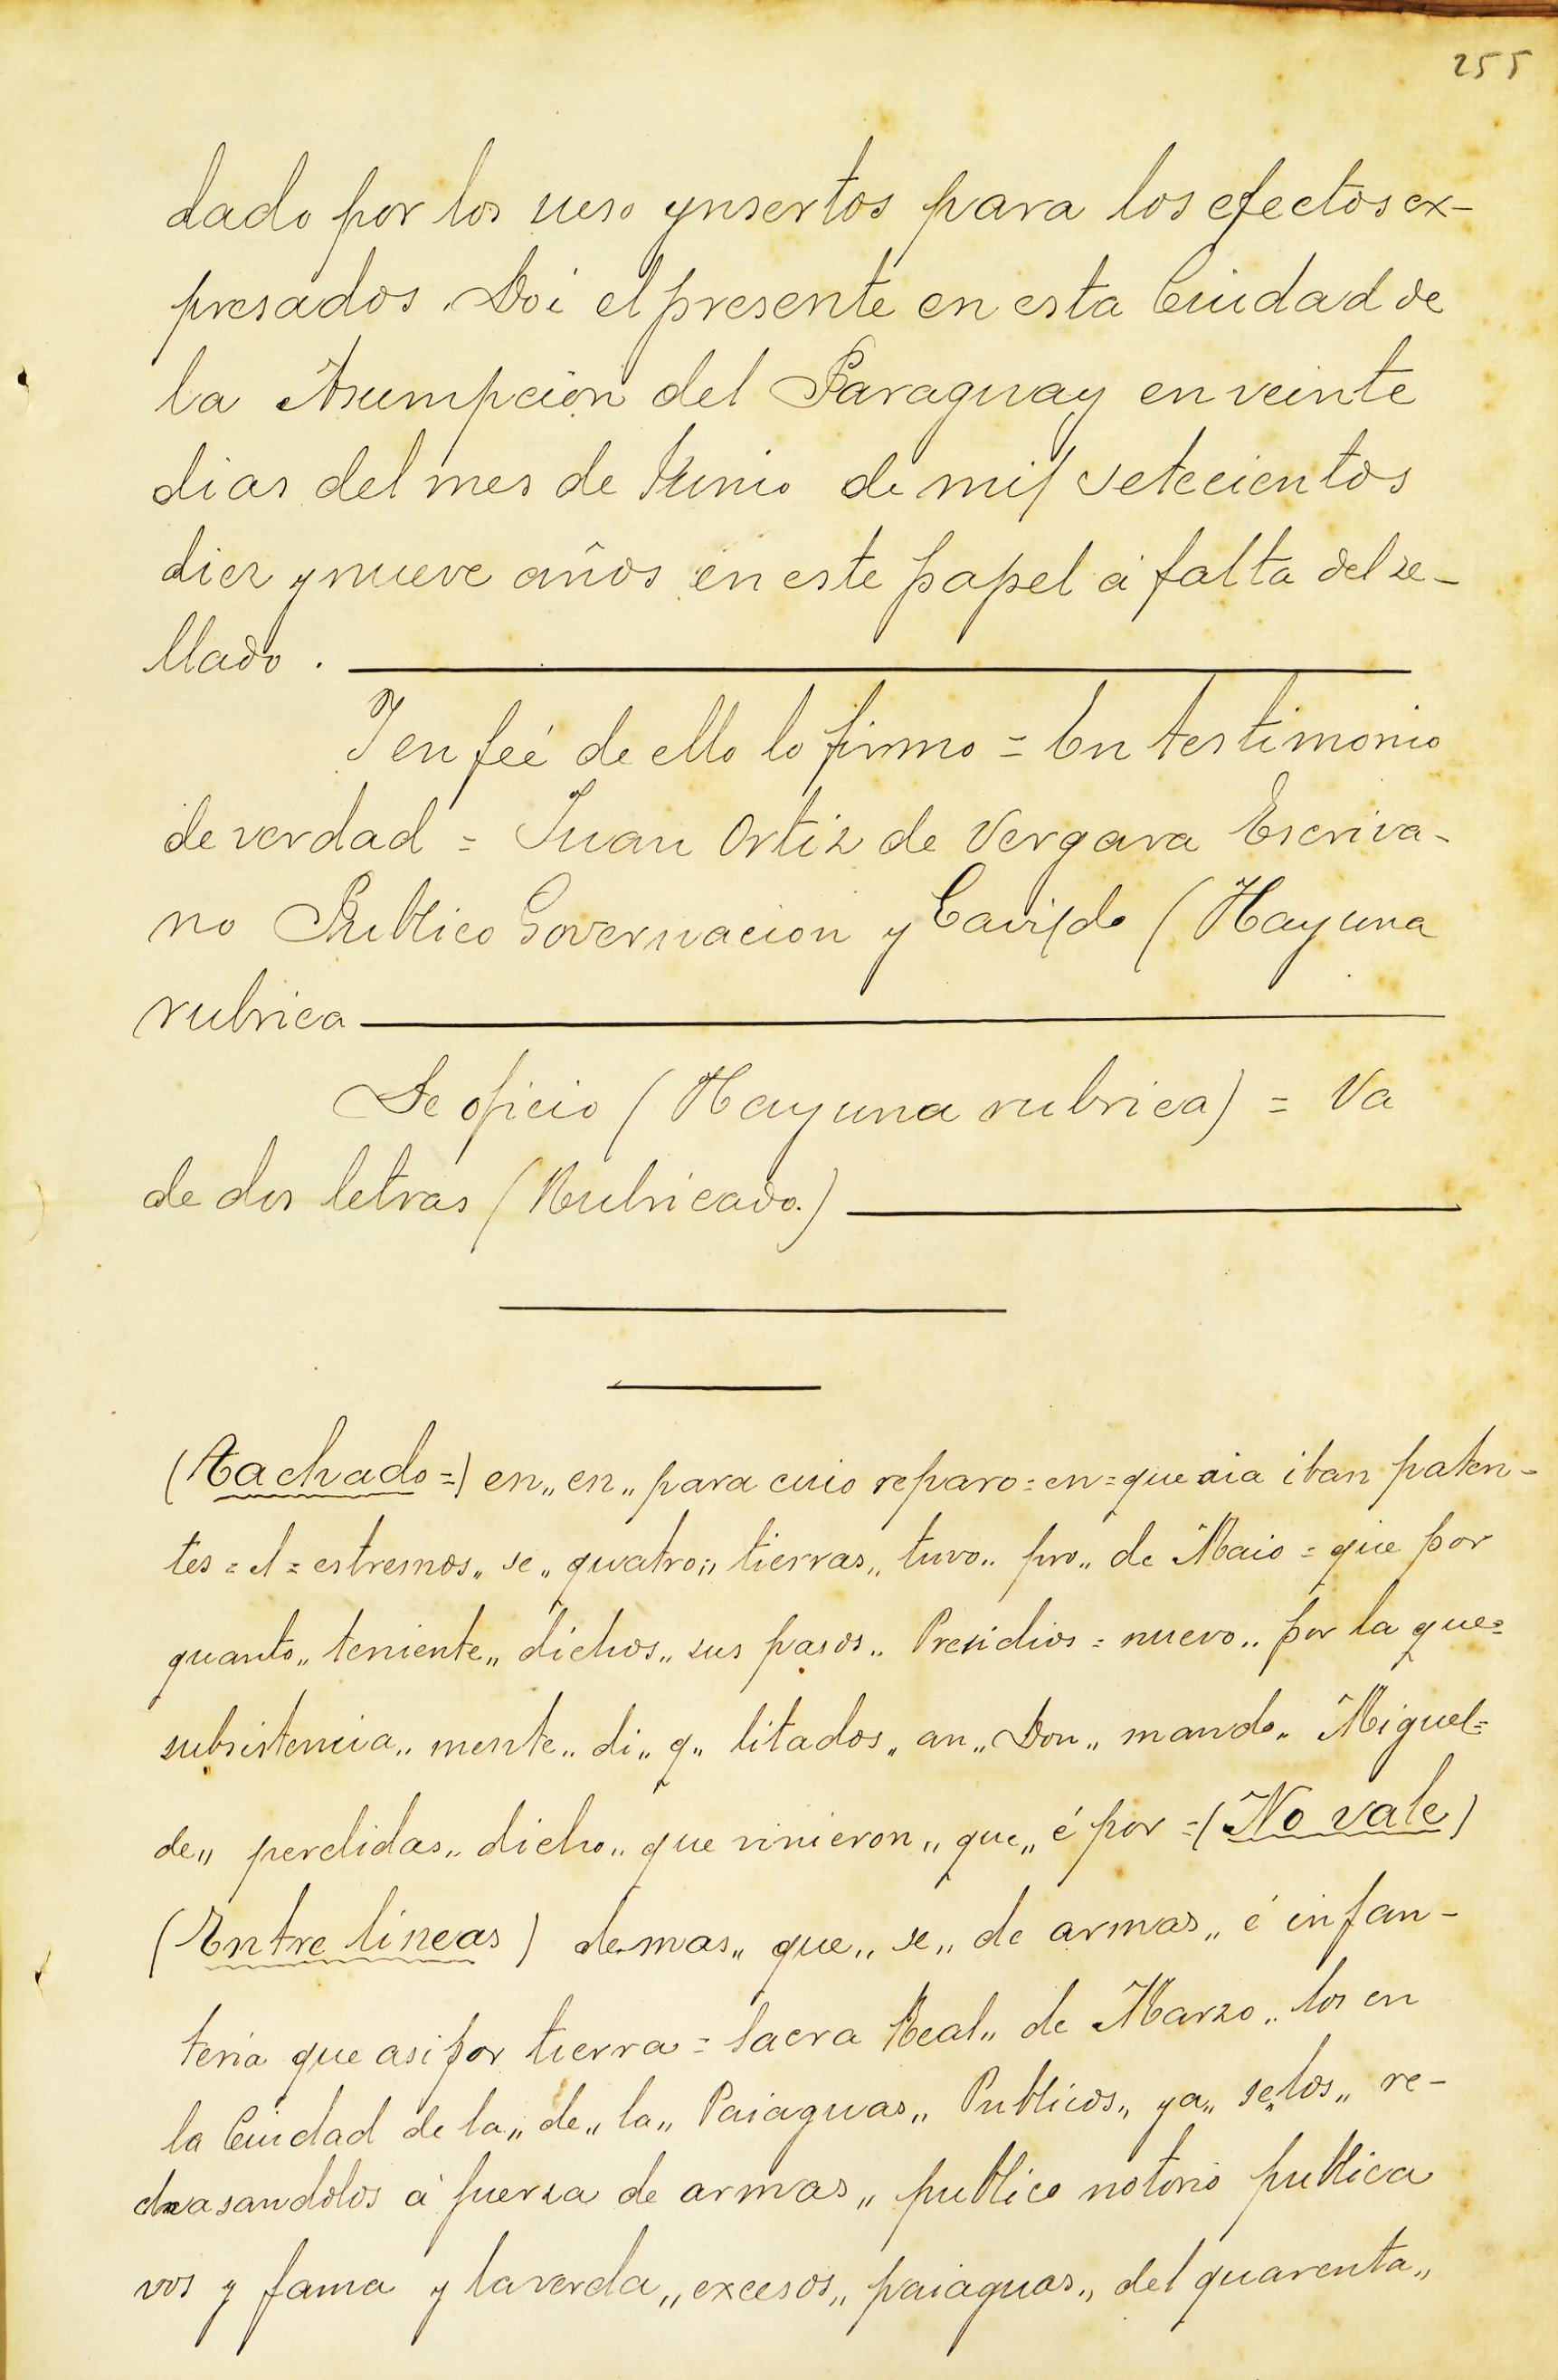 255
dado por los ueso ynsertos para los efectos ex-
presados. Doi el presente en esta Ciudad de
la Asumpcion del Paraguay en veinte
dias del mes de Junio de mil setecientos
diez y nueve años en este papel á falta del se-
llado.
I en feé de ello lo firmo = En testimonio
de verdad = Juan Ortiz de Vergara Escriva-
no Publico Governacion y Cavildo (Hay una
rubrica
De oficio (Hay una rubrica) = Va
de dos letras (Rubricado.)
(Tachado =) en„ en„ para cuio reparo = en = que aia iban paten-
tes = el = estremos„ se„ quatro„ tierras„ tuvo„ pro„ de Maio = que por
quanto„ teniente„ dichos„ sus pasos„ Presidios = nuevo„ por la que=
subsistencia„ mente„ di„ q„ litados„ an„ Don„ mando„ Miguel=
de„ perdidas„ dicho„ que vinieron„ que„ é por = (No vale)
(Entre lineas) demas„ que„ se„ de armas„ é infan-
teria que asi por tierra = Sacra Real„ de Marzo„ los en
la Ciudad de la„ de„ la„ Paiaguas„ Publicos„ ya„ se„ los„ re-
chasandolos á fuerza de armas„ publico notorio publica
vos y fama y la verda„ excesos„ paiaguas„ del quarenta„